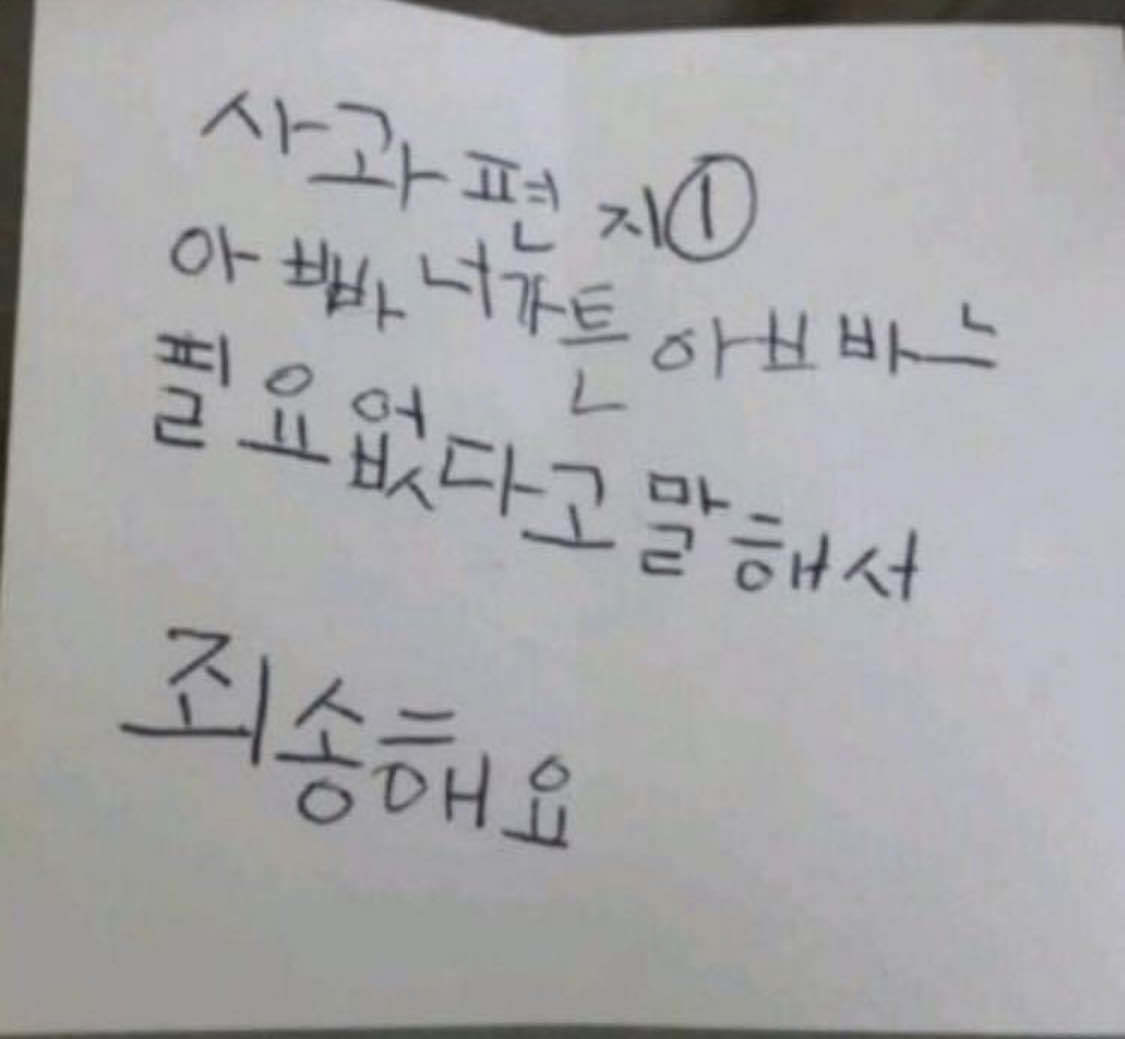 사과편지①
아빠너가튼 아브바느
필요없다고 말해서
죄송해요